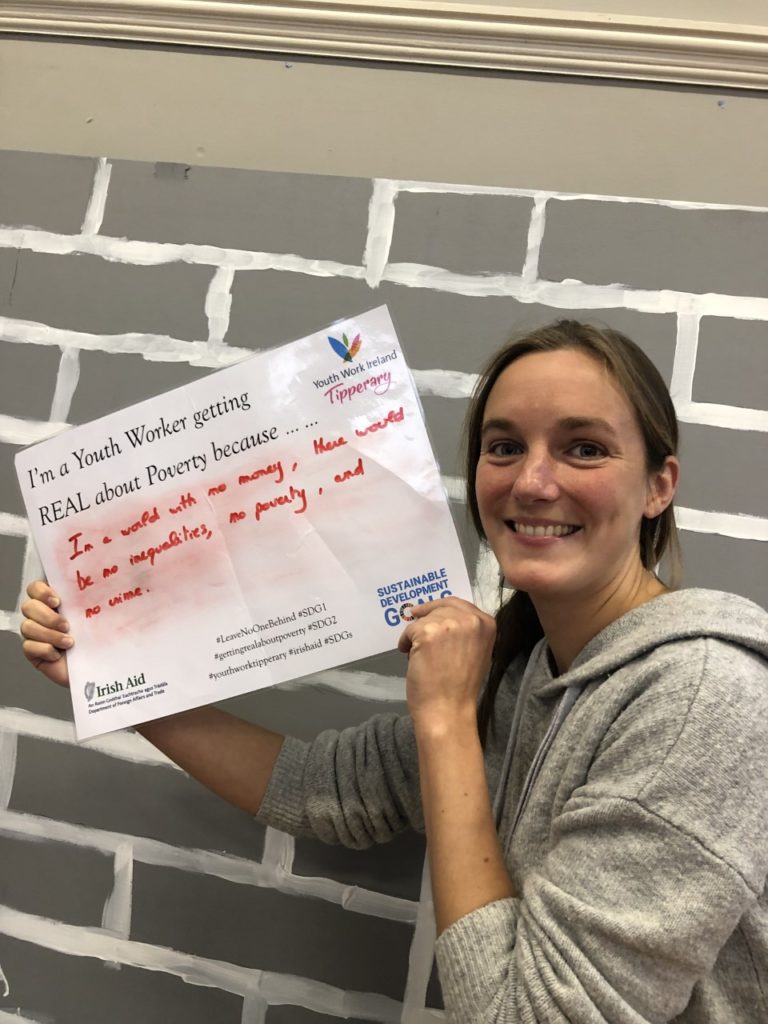 Youth Work Ireland
Tipperary
I'm a Youth Worker getting
REAL about Poverty because ... ...
In a world with no money, there would
be no inequalities, no poverty, and
no crime.
#LeaveNoOneBehind #SDG1
#gettingrealaboutpoverty #SDG2
#youthworktipperary #irishaid #SDGs
SUSTAINABLE
DEVELOPMENT
GOALS
Irish Aid
An Roinn Gnóthaí Eachtracha agus Trádála
Department of Foreign Affairs and Trade